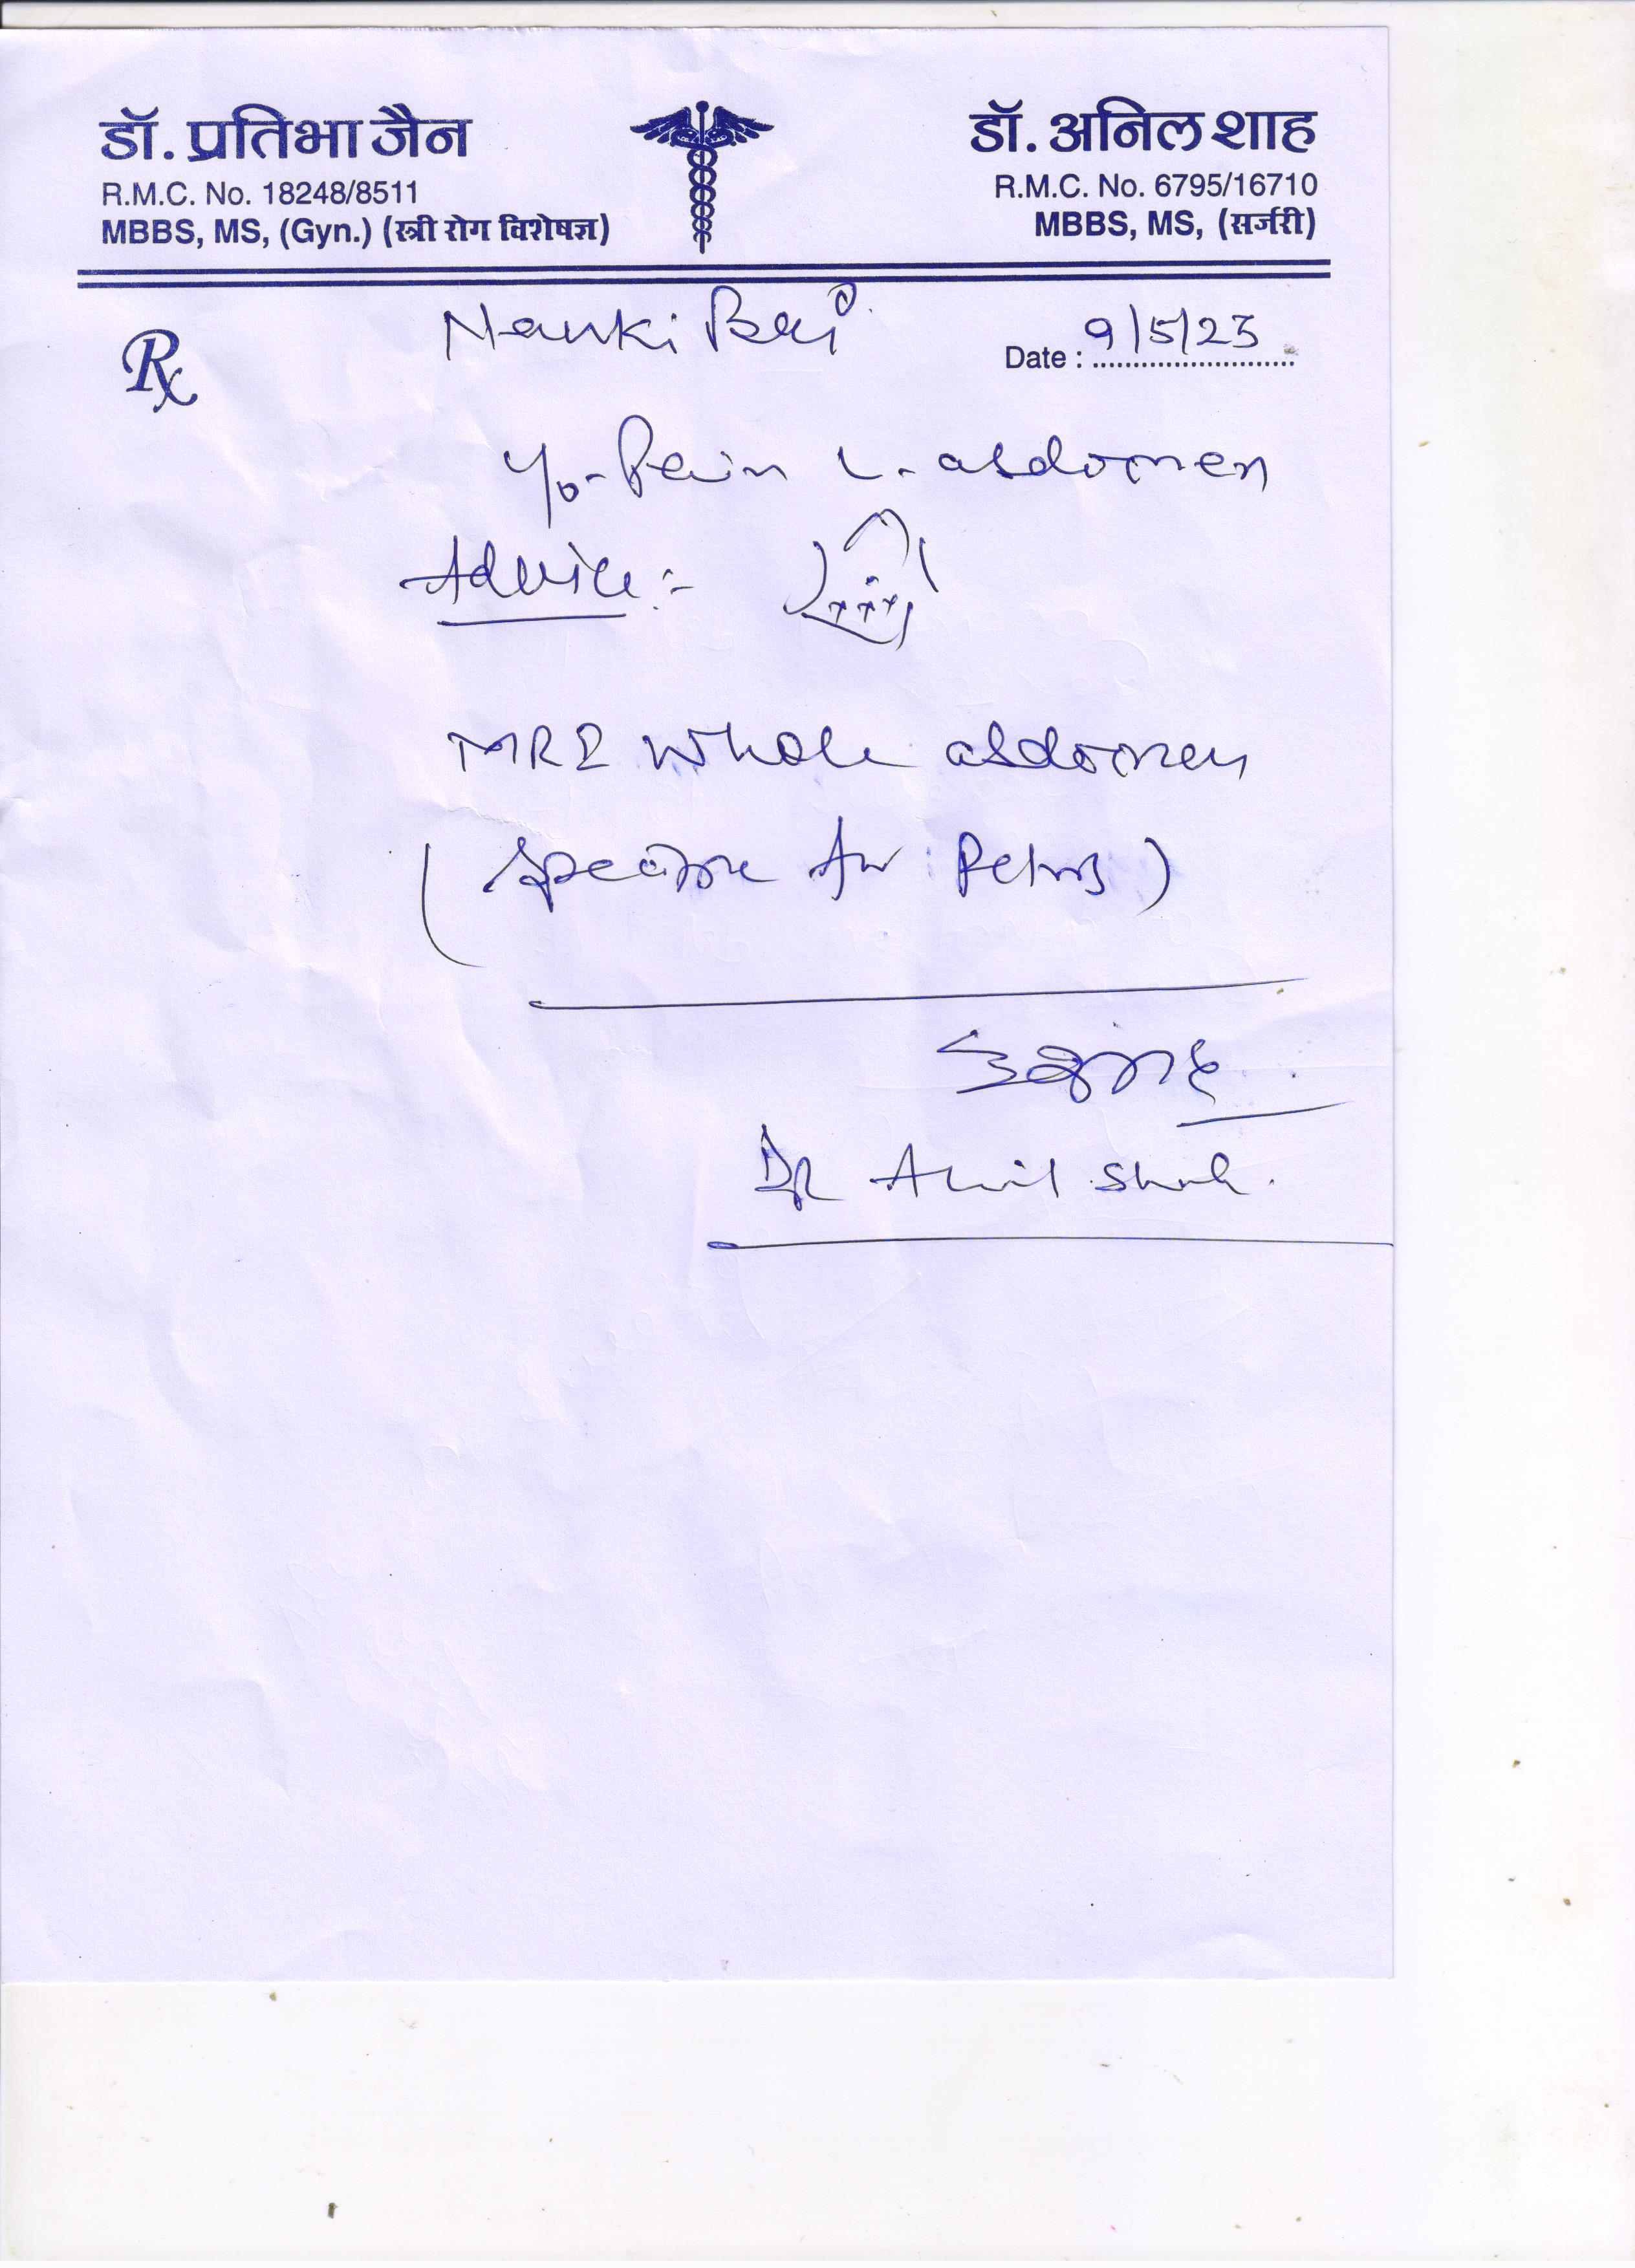 डॉ. प्रतिभा जैन
R.M.C. No. 18248/8511
MBBS, MS, (Gyn.) (स्त्री रोग विशेषज्ञ)
डॉ. अनिल शाह
R.M.C. No. 6795/16710
MBBS, MS, (सर्जरी)
Rx
Nanki Bai
Date : 9/5/23
Pain L. abdomen
Advice :-
MRI Whole abdomen
( for Pelvis )
Dr Anil Shah.